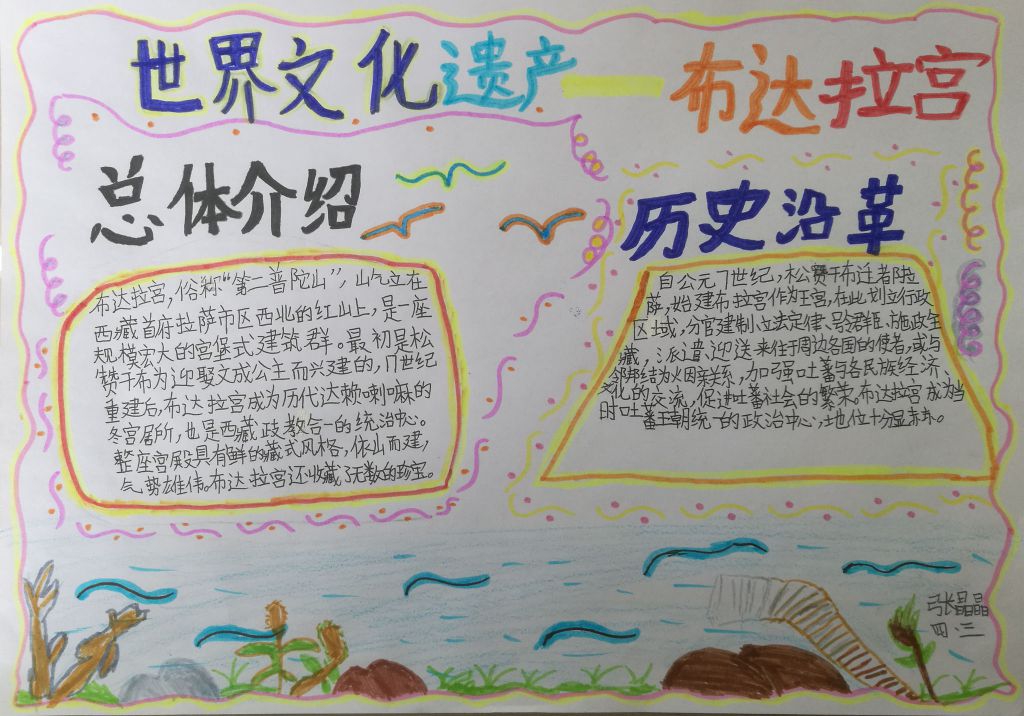 世界文化遗产——布达拉宫
总体介绍
布达拉宫,俗称“第二普陀山”,屹立在
西藏首府拉萨市区西北的红山上,是一座
规模宏大的宫堡式建筑群。最初是松
赞干布为迎娶文成公主而兴建的,17世纪
重建后,布达拉宫成为历代达赖喇嘛的
冬宫居所,也是西藏政教合一的统治中心。
整座宫殿具有鲜的藏式风格,依山而建,
气势雄伟。布达拉宫还收藏了无数的珍宝。
历史沿革
自公元7世纪,松赞干布迁者陆
萨,始建布拉宫作为王宫,在此划立行政
区域,分官建制小立法定律、号令群臣、施政全
藏,派遣迎送来住于周边各国的使者,或与
邻邦结为姻亲关系,加强吐蕃与各民族经济、
文化的交流,促进吐蕃社会的繁荣,布达拉宫成为当
时吐蕃王朝统一的政治中心,地位十分显赫。
张晶晶
四.三